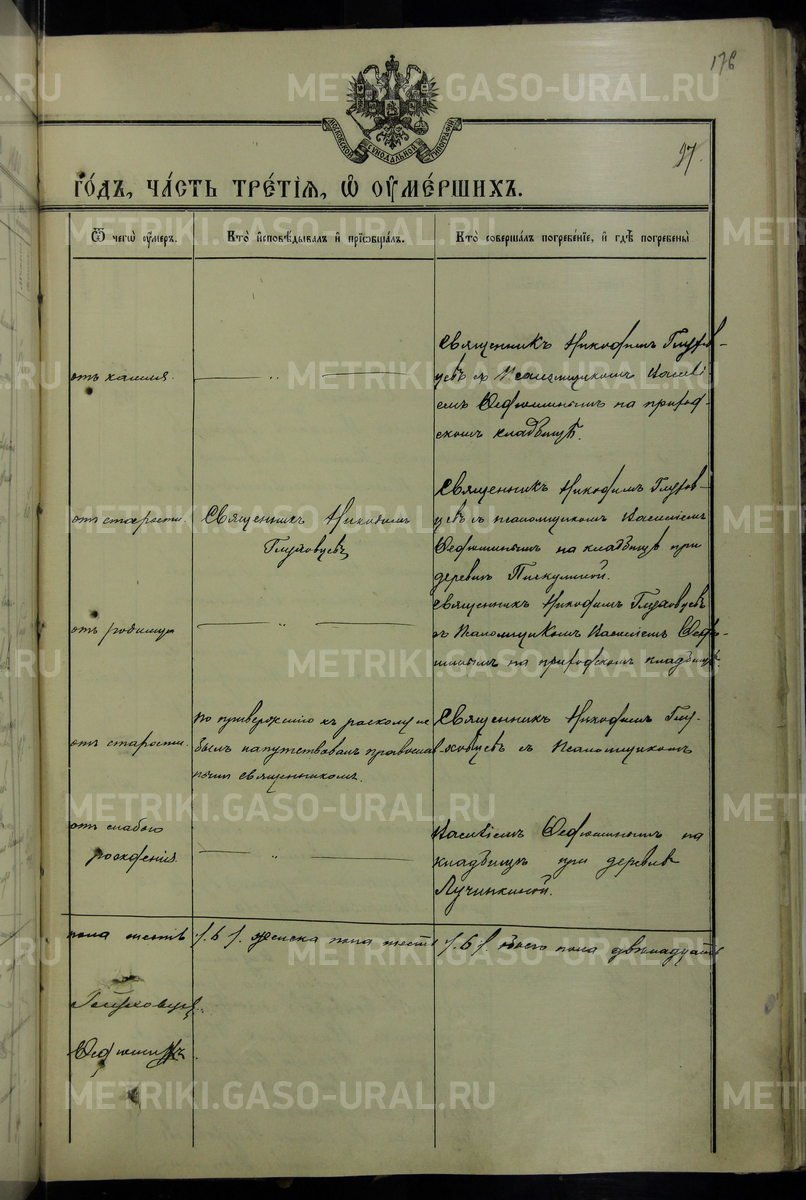 176
МОСКОВСКОЙ СѴНОДАЛЬНОЙ ТИПОГРАФІИ
27.
ГО́ДЪ, ЧА́СТЬ ТРЕ́ТІѦ, Ѡ ОУМЕ́РШИХЪ.
Ѿ чегѡ̀ ᲂу҆́меръ.
Кто̀ и҆сповѣ́дывалъ и҆ прїѡбща́лъ.
Кто̀ соверша́лъ погребе́нїе, и҆ гдѣ̀ погребены̀
отъ кашля.
Священникъ Никодимъ Глухов-
цевъ съ Псаломщикомъ Васи
емъ на приход-
скомъ кладбищѣ.
отъ старости.
Священникъ Никодимъ
Глуховцевъ
Священникъ Никодимъ Глухов-
цевъ съ псаломщикомъ Василіемъ
на кладбищѣ при
деревнѣ
отъ родимца
Священникъ Никодимъ Глуховцевъ
съ Псаломщикомъ Василіемъ
на приходскомъ кладбищѣ.
отъ старости.
По приверженію къ расколу не
былъ напутствованъ православ-
нымъ священникомъ.
Священникъ Никодимъ Глу-
ховцевъ съ Псаломщикомъ
отъ слабаго
рожденія
Василіемъ на
кладбищѣ при деревнѣ
Лучинкиной.
пола шесть /.6./. женска пола шесть /.6./. обоего пола двѣнадцать
Глуховцевъ
METRIKI.GASO-URAL.RU